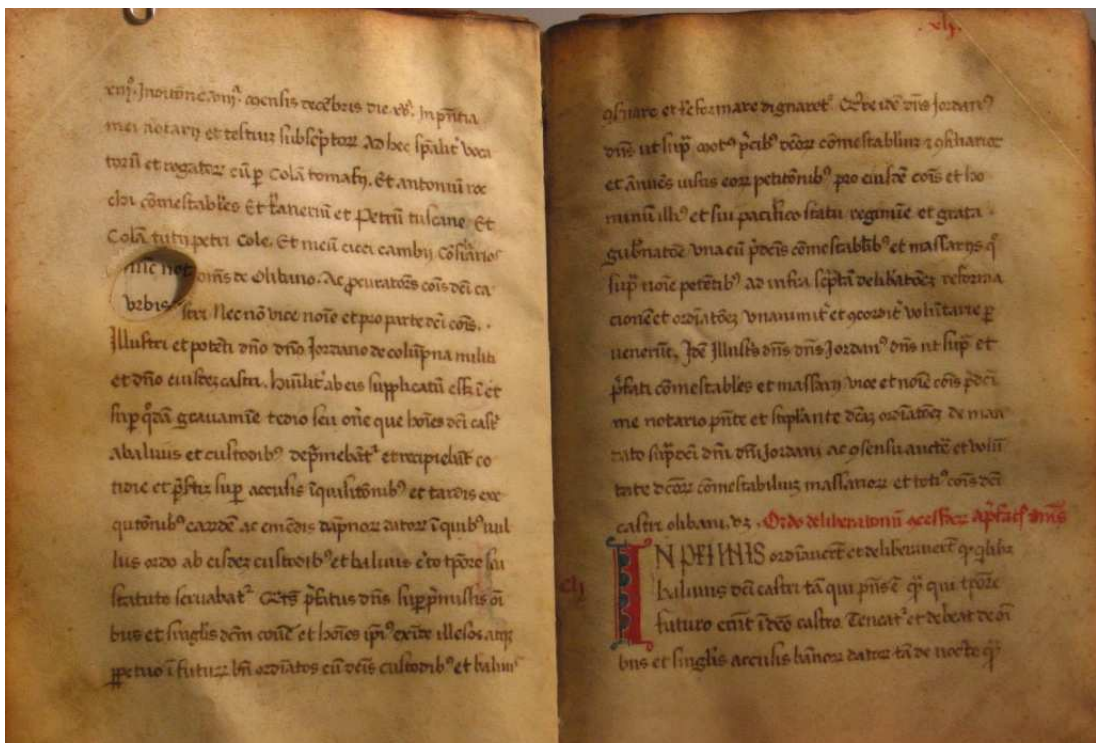 xiijº. Indictōne. viijª. mensis decēbris die. xvº. In p̄ntia
mei notarij et testium subscptoꝝ ad hec sp̄alit' voca
toꝝ et rogatoꝝ cū p Colā tomasij. Et antoniū roc
chi cōmestabiles Et Raneriū et Petrū tuscane. Et
Colā tutij petri Cole. Et meū cicci cambij Cōsiliarios
not oīs de Olibano. Ac procuratores coīs dc̄i ca
stri Nec nō vice noīe et pro parte dc̄i coīs.
Illustri et potēti dn̄o dn̄o Jordano de colūpna militi
et dn̄o eiusdeȝ castri. hūilit' ab eis supplicatū esset ī et
sup q̄dā gravamīe tedio seu onē que hoīes dc̄i castri
a baliuis et custodibꝰ dep̄mebāt' et recipiebāt co
tidie et p̄stiȝ sup accusis īquisitōnibꝰ et tardis exe
qutōnibꝰ earūdē ac emēdis dāpnoꝝ datoꝝ ī quibꝰ nul
lus ordo ab eisdeȝ custodibꝰ et baliuis c̄to tp̄ore seu
statuto servabat'. p̄fatus dn̄s sup p̄missis oī
bus et singlis dc̄m coīe et hoīes
ppetuo ī futuꝝ bn̄ ordīatos cū dc̄is custodibꝰ et baliuis
xlj.
ꝯs̄uare et refermare dignaret'. idē dn̄s Jordanꝰ
dn̄s ut sup motꝰ p̄cibꝰ dc̄oꝝ cōmestabiliuȝ ⁊ ꝯsiliarioꝝ
et ānuēs eoꝝ petitōnibꝰ pro eiusdē coīs et ho
minū illiꝰ et sui pacifico statu regimīe et grata
gub̄natōe una cū p̄dc̄is cōmestabilibꝰ et massarijs q̄
sup noīe petētibꝰ ad infra sc̄ptā delibatōeȝ reforma
cionē et ordīatōeȝ unanimit' et ꝯcordit' volūtarie p
venerūt. Idē Illustris dn̄s dn̄s Jordanꝰ dn̄s ut sup et
p̄fati cōmestabiles et massarij vice et noīe coīs p̄dc̄i
me notario p̄nte et stiplante dc̄aȝ ordīatōeȝ de man
dato sup dc̄i dn̄i dn̄i Jordani ac ꝯsensu auctē et volū
tate dc̄oꝝ cōmestabiliuȝ massarioꝝ et totiꝰ coīs dc̄i
castri olibani. vȝ. Ordo deliberationū
IN PRIMIS ordīaverūt et deliberaverūt qꝫ qlibȝ
baliuus dc̄i castri tā qui p̄ns ē qꝫ qui tp̄ore
futuro erūt ī dc̄o castro. Teneat' et debeat de oī
bus et singlis accusis bānoꝝ datoꝝ tā de nocte qꝫ